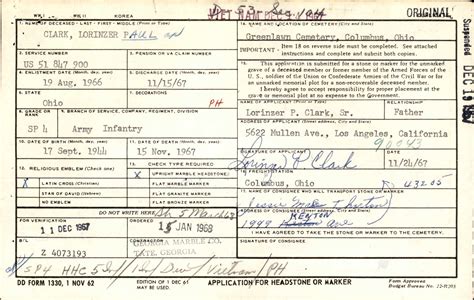 WWI WWII KOREA VIETNAM DEC 9 1967 ORIGINAL
1. NAME OF DECEASED - LAST - FIRST - MIDDLE (Print or Type)
CLARK, LORINZER PAUL
NAME AND LOCATION OF CEMETERY (City and State)
Greenlawn Cemetery, Columbus, Ohio
2. SERVICE NUMBER
PENSION OR VA CLAIM NUMBER
US 51 847 900
IMPORTANT - Item 18 on reverse side must be completed. See attached
instructions and complete and submit both copies.
ENLISTMENT DATE
DISCHARGE DATE
19 Aug. 1966
11/15/67
This application is submitted for a stone or marker for the unmarked
grave of a deceased member or former member of the Armed Forces of the
U. S., soldier of the Union or Confederate Armies of the Civil War or for
an unmarked memorial plot for a non-recoverable deceased member.
I hereby agree to accept responsibility for properly placing the stone
or marker at no expense to the Government.
STATE
DECORATIONS
Ohio
PH
NAME OF APPLICANT (Print or Type)
RELATIONSHIP
Lorinzer P. Clark, Sr.
Father
GRADE OR RANK
BRANCH OF SERVICE, COMPANY, REGIMENT, DIVISION
SP 4 Army Infantry
ADDRESS OF APPLICANT (Street address, City and State)
5622 Mullen Ave., Los Angeles, California
90043
10. DATE OF BIRTH (Month, Day, Year)
11. DATE OF DEATH (Month, Day, Year)
17 Sept. 1944
15 Nov. 1967
SIGNATURE OF APPLICANT
DATE
Lorinzer P Clark
11/24/67
RELIGIOUS EMBLEM (Check one)
CHECK TYPE REQUIRED
X LATIN CROSS (Christian)
STAR OF DAVID (Hebrew)
NO EMBLEM
X UPRIGHT MARBLE HEADSTONE
FLAT MARBLE MARKER
FLAT GRANITE MARKER
FLAT BRONZE MARKER
FREIGHT STATION
Columbus, Ohio
43205
NAME OF CONSIGNEE WHO WILL TRANSPORT STONE OR MARKER
DO NOT WRITE HERE
FOR VERIFICATION
11 DEC 1967
15 JAN 1968
ADDRESS OF CONSIGNEE (Street address, City and State)
1999 KENTON Ave
I HAVE AGREED TO TRANSPORT THE STONE OR MARKER TO THE CEMETERY.
ORDERED
Z 4073193
GEORGIA MARBLE CO.
TATE, GEORGIA
SIGNATURE OF CONSIGNEE
DATE
SP4 HHC 1st Inf Div Vietnam PH
DD FORM 1330, 1 NOV 62
EDITION OF 1 DEC 61
MAY BE USED
APPLICATION FOR HEADSTONE OR MARKER
Form Approved
Budget Bureau No. 22-R203